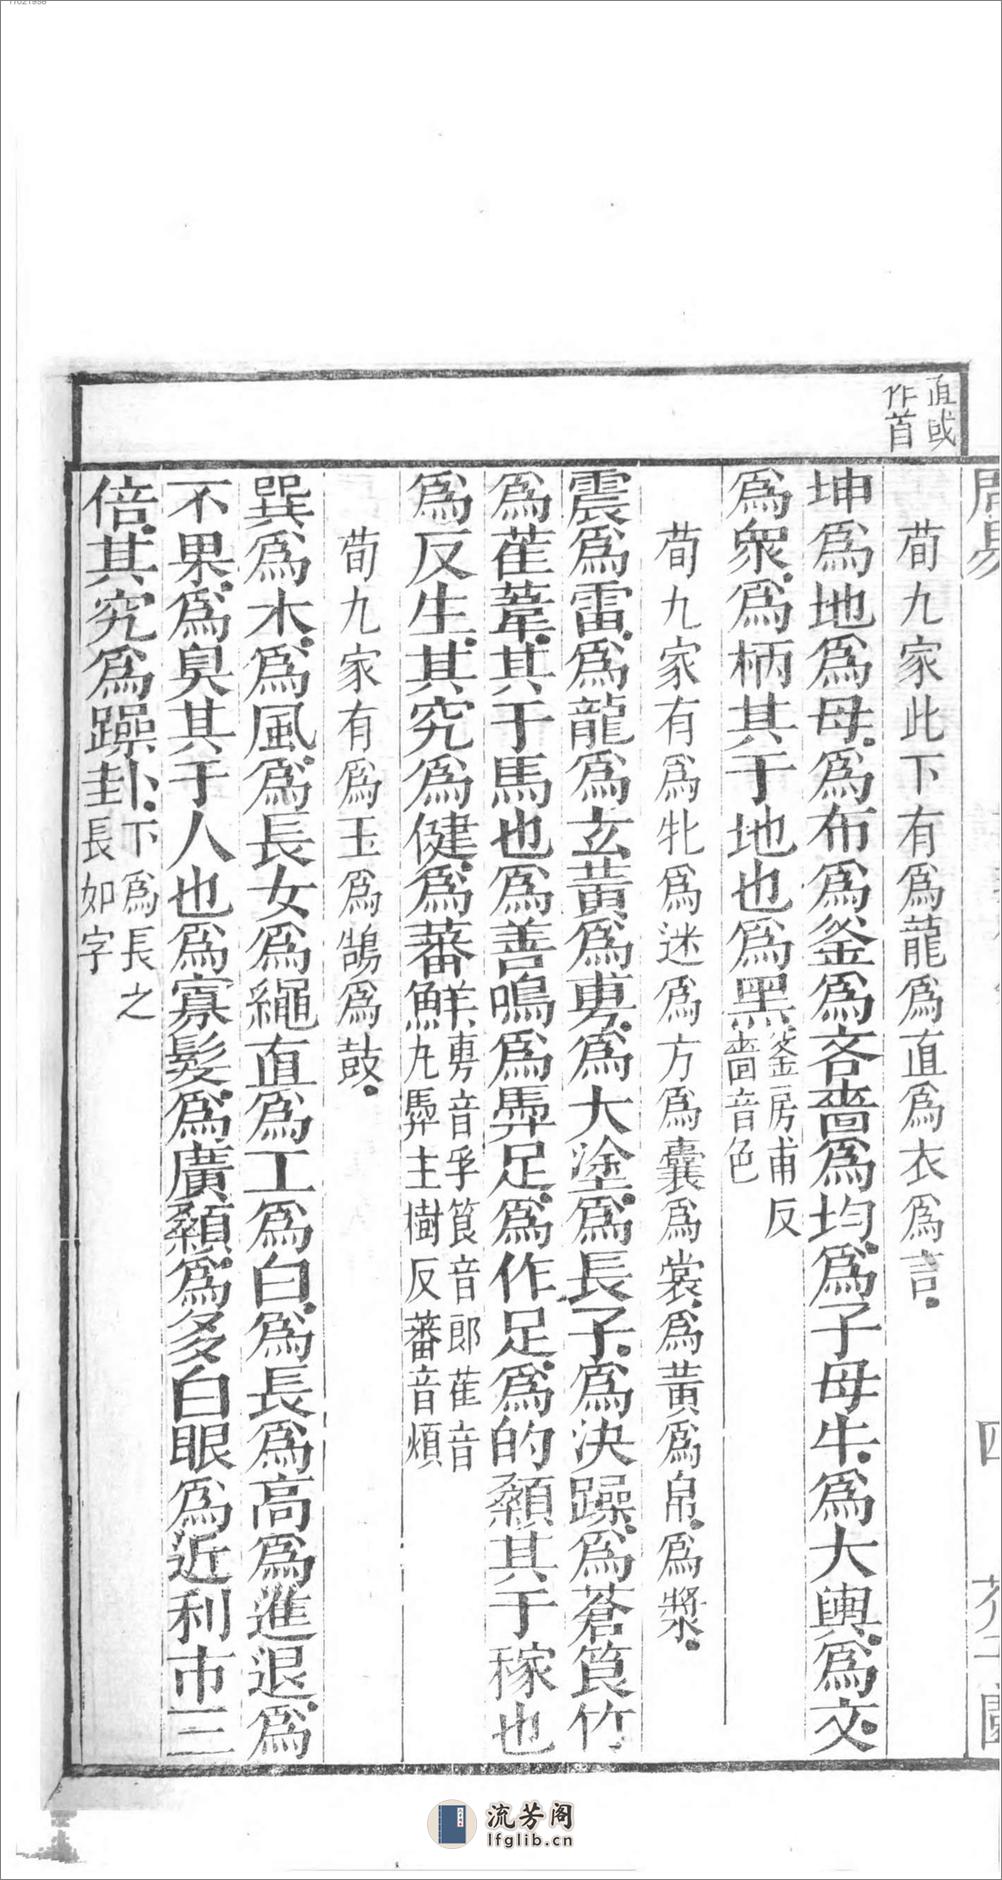 直或
作首
荀九家此下有爲龍爲直爲衣爲言
坤爲地爲母爲布爲釜爲吝嗇爲均爲子母牛爲大輿爲文
爲衆爲柄其于地也爲黑釜房甫反
嗇音色
荀九家有爲牝爲迷爲方爲囊爲裳爲黃爲帛爲漿
震爲雷爲龍爲玄黃爲旉爲大塗爲長子爲決躁爲蒼筤竹
爲萑葦其于馬也爲善鳴爲馵足爲作足爲的顙其于稼也
爲反生其究爲健爲蕃鮮旉音孚筤音郎萑音
九馵主樹反蕃音煩
荀九家有爲玉爲鵠爲鼓
巽爲木爲風爲長女爲繩直爲工爲白爲長爲高爲進退爲
不果爲臭其于人也爲寡髮爲廣顙爲多白眼爲近利市三
倍其究爲躁卦下爲長之
長如字
流芳阁
lfglib.cn